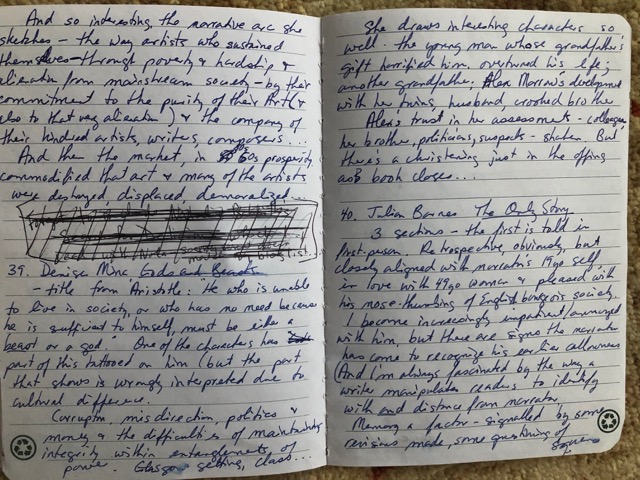 And so interesting, the narrative arc she
sketches - the way artists who sustained
themselves through poverty & hardship &
alienation from mainstream society - by their
commitment to the purity of their Art (&
also to that very alienation) & the company of
their kindred artists, writers, composers...
And then the market, in 50s prosperity
commodified that art & many of the artists
were destroyed displaced, demoralized...
39. Denise Mina Gods and Beasts
- title from Aristotle: He who is unable
to live in society, or who has no need because
he is sufficient to himself, must be either a
beast or a god." One of the characters has
part of this tattooed on him (but the part
that shows is wrongly interpreted due to
cultural difference.
Corruption, misdirection, politics &
money & the difficulties of maintaining
integrity within entanglements of
power. Glasgow setting, class...
She draws interesting characters so
well - the young man whose grandfather's
gift horrified him, overturned his life;
another grandfather, Alex Morrow's development
with her twins, husband, crooked brother
Alex's trust in her assessments - colleagues,
her brother, politicians, suspects - shaken. But
there's a christening just in the offing
as book closes...
40. Julian Barnes The Only Story
3 sections - the first is told in
first-person. Retrospective, obviously, but
closely aligned with narrator's 19yo self
in love with 49yo woman & pleased with
his nose-thumbing of English bourgeois society.
I become increasingly impatient/annoyed
with him, but there are signs the narrator
has come to recognize his earlier callowness
(And I'm always fascinated by the way a
writer manipulates readers to identify
with and distance from narrator.
Memory a factor - signalled by some
revisions made, some questioning of